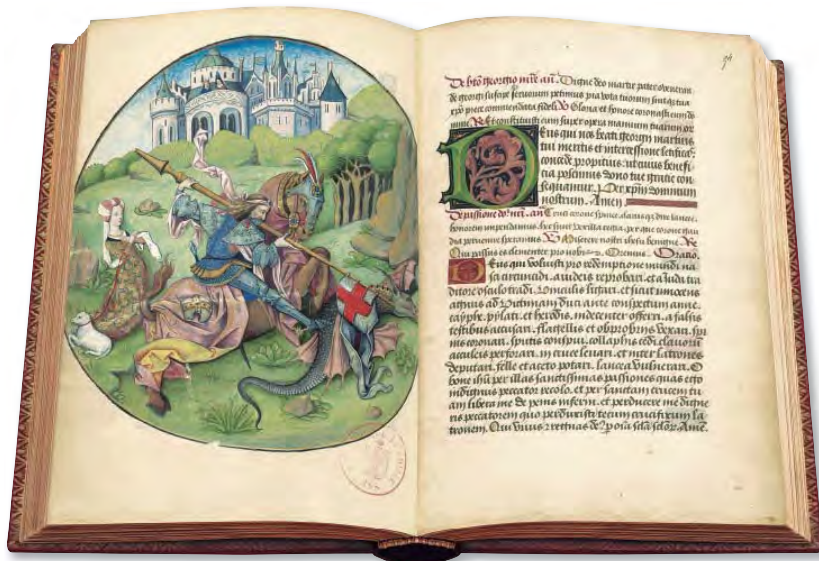 94
De sc̄o georgio mr̄e. an̄. Digne deo martir pater
de georgi suscipe seruorum petimus pia vota tuorum
xp̄o prece commendata fideli V Gloria et honore coronasti eum
Et constituisti eum super opera manuum tuarum or
Deus qui nos beati georgii martiris
tui meritis et intercessione letificas
concede propitius: ut
tia poscimus dono tue gratie con
sequamur. Per xp̄m dominum
nostrum. Amen
De passione
honorem
dia peruenire
Qui passus es clementer pro nobis Oremus. Oratio.
Deus qui voluisti pro redemptione mundi na
sci circuncidi. a iudeis reprobari. et a iuda tra
ditore osculo tradi. Vinculis ligari. et sicut innocens
agnus ad Victimam duci. ante conspectum anne.
cayphe. pylati. et herodis. indecenter offerri. a falsis
testibus accusari. flagellis et obprobriis vexari. spi
nis coronari. sputis conspui. collaphis cedi. clauorū
aculeis perforari. in cruce leuari. et inter latrones
deputari. felle et aceto potari. lancea Vulnerari. O
bone ihū per illas sanctissimas passiones quas ego
indignus peccator recolo. et per sanctam crucem tu
am libera me de penis inferni. et perducere me digne
ris peccatorem quo perduxisti tecum crucifixum la
tronem. Qui Viuis et regnas Amē.